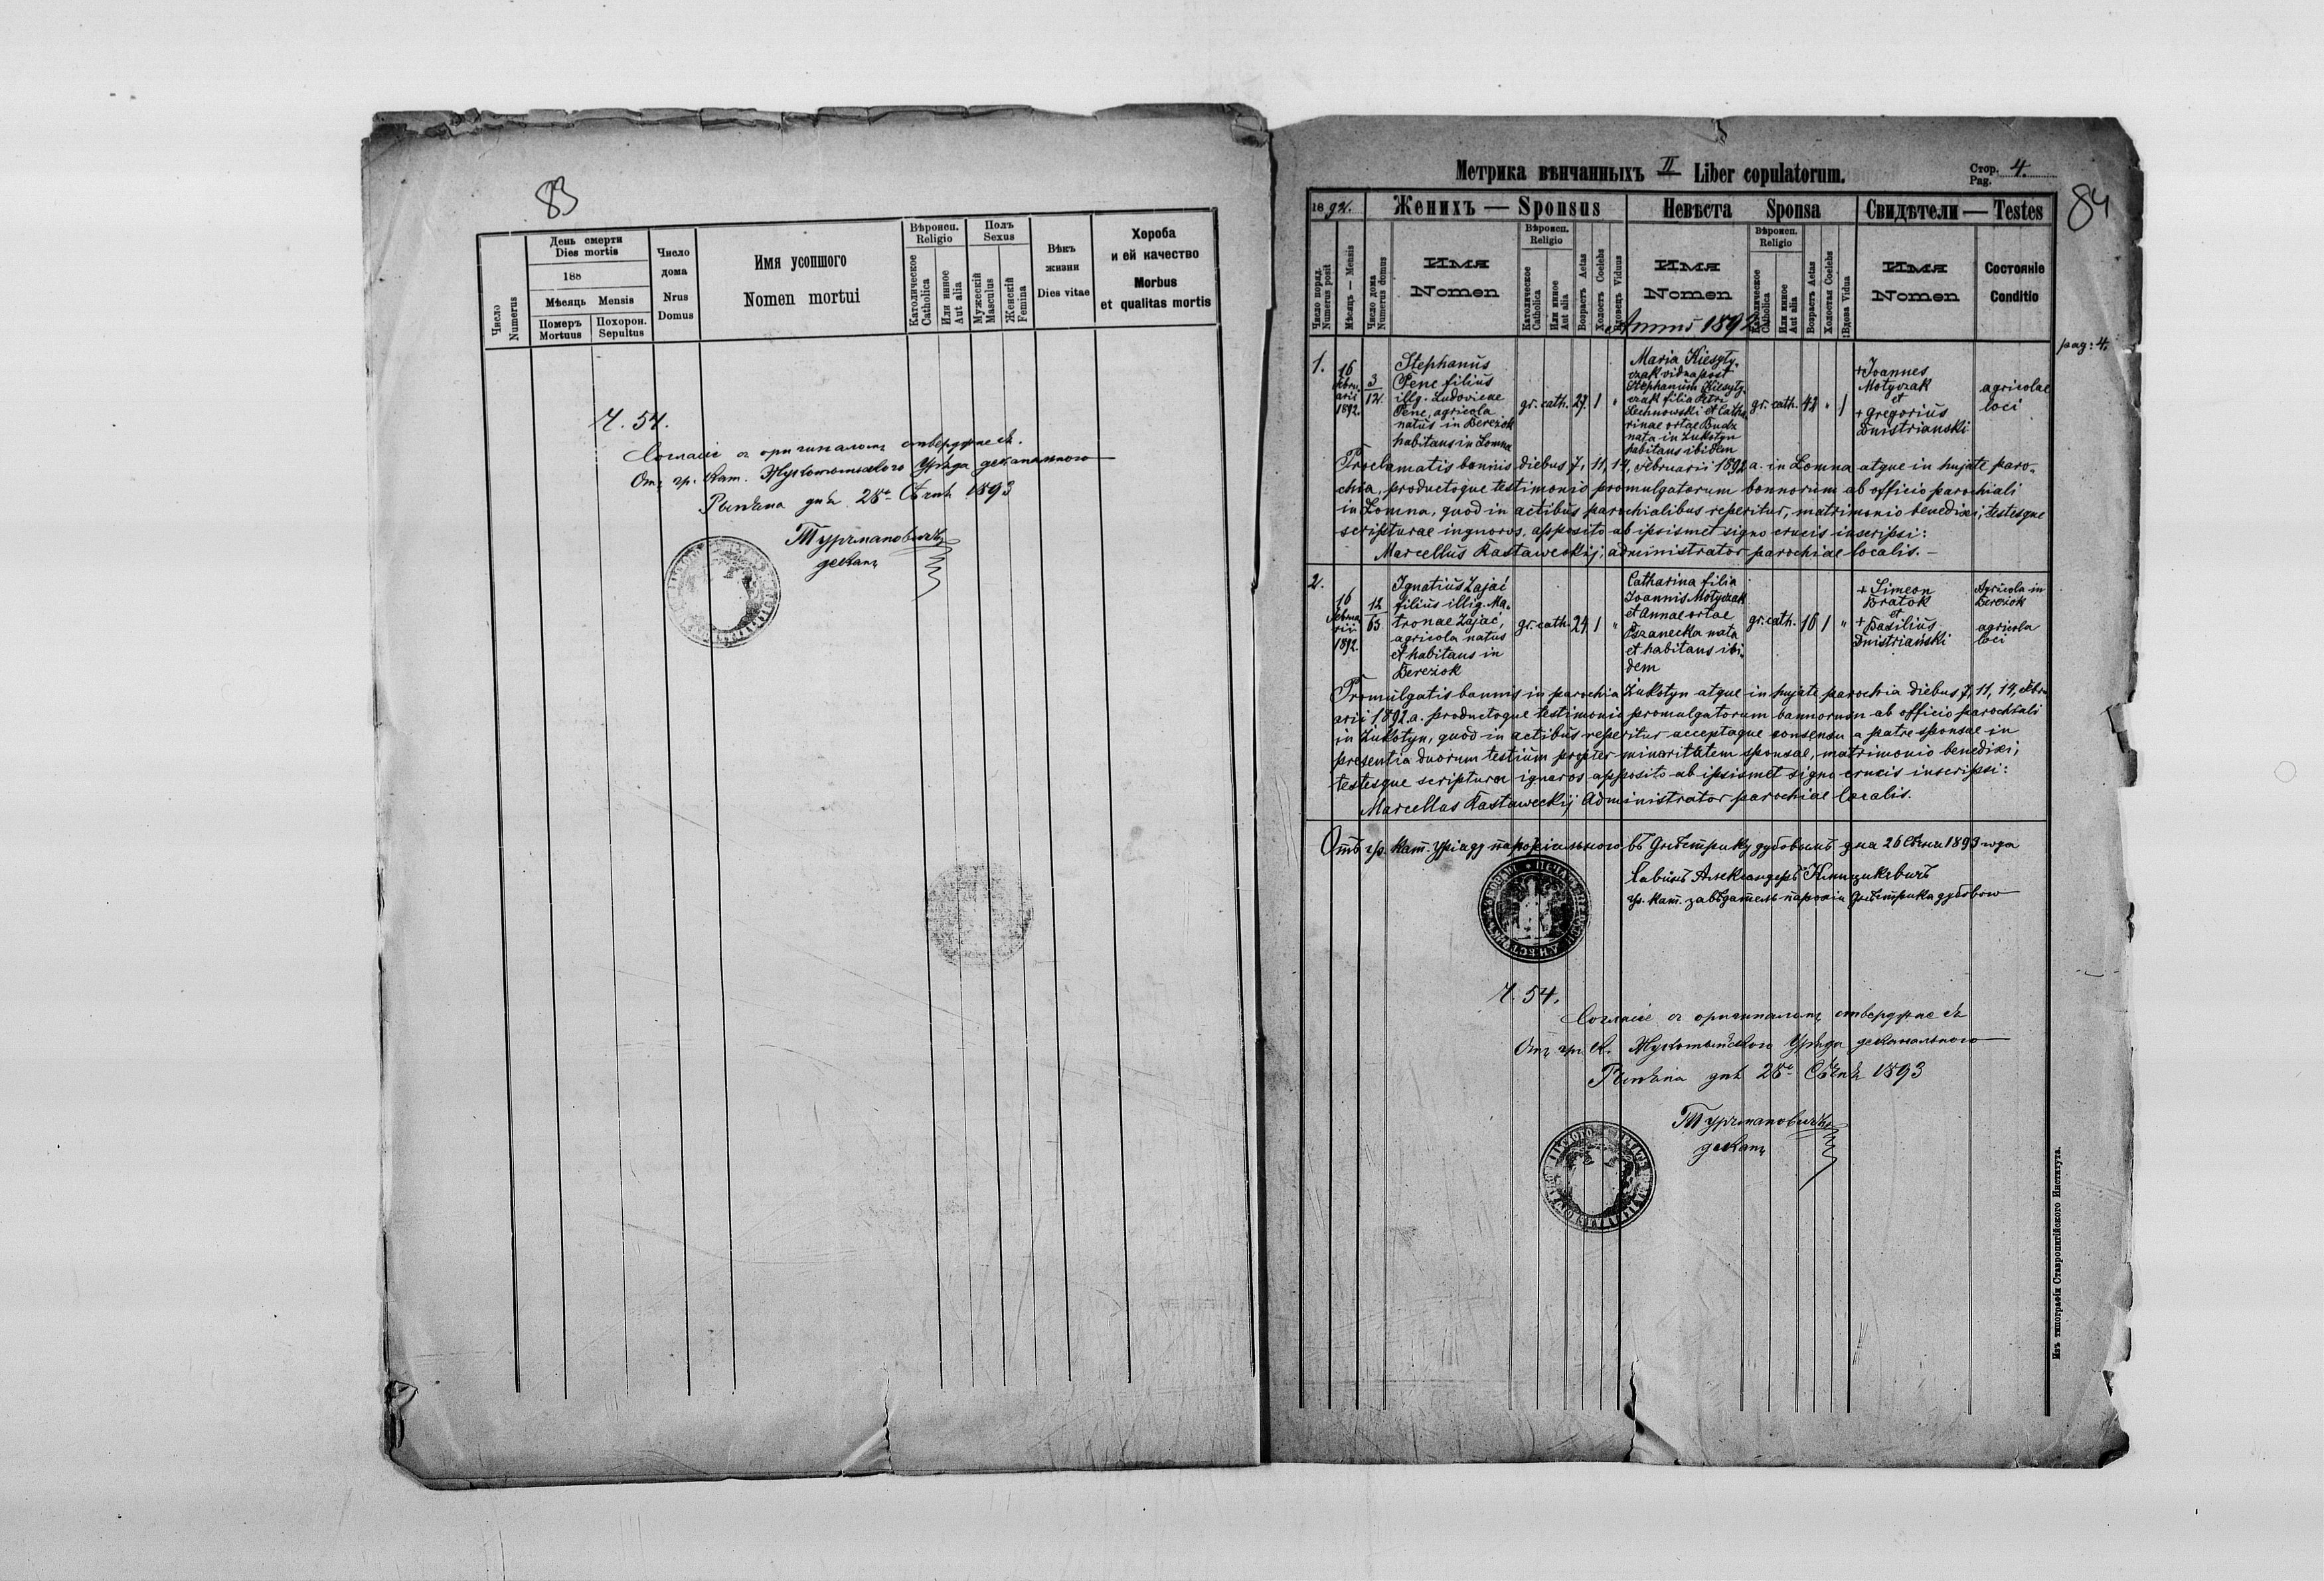 83
Число
Numerus
День смерти
Dies mortis
188
Мѣсяць Mensis
Померъ
Mortuus
Похорон.
Sepultus
Число
дома
Nrus
Domus
Имя усопшого
Nomen mortui
Вѣроисп.
Religio
Католическое
Catholica
Или инное
Aut alia
Полъ
Sexus
Мужескій
Masculus
Женскій
Femina
Вѣкъ
жизни
Dies vitae
Хороба
и ей качество
Morbus
et qualitas mortis
Ч. 54.
Согласіе с оригиналомъ отверджаєсѧ.
Отъ гр. кат. Жукотинского Уряда деканального
дня 28 Сѣчня 1893
Турчмановичъ
деканъ
Метрика вѣнчанныхъ II Liber copulatorum.
Стор. 4.
Pag.
84
1892.
Женихъ — Sponsus
Невѣста Sponsa
Свидѣтели — Testes
Число поряд.
Numerus posit
Мѣсяць — Mensis
Число дома
Numerus domus
Имя
Nomen
Вѣроисп.
Religio
Католическое
Catholica
Или инное
Aut alia
Возрастъ Aetas
Холостъ Coelebs
Вдовець Viduus
Имя
Nomen
Вѣроисп.
Religio
Католическое
Catholica
Или инное
Aut alia
Возрастъ Aetas
Холостая Coelebs
Вдова Vidua
Имя
Nomen
Состояніе
Conditio
Anno 1892
pag: 4.
1.
16
Febru
arii
1892.
3
12
Stephanus
Penc filius
illg. Ludovicae
Penc, agricola
natus in Bereżok
habitans in Łomna
gr. cath. 27 1 "
Maria
czak vidua post
Stephanum
czak filia Petri
Lechnowski et Catha
rinae ortae Budz
nata in Żukotyn
habitans ibidem
gr. cath. 42 " 1
+ Joannes
Motyczak
et
+ Gregorius
Dnistrianski
agricolae
loci
Proclamatis bannis diebus 7, 11, 14, Februarii 1892 a. in Łomna atque in hujate paro-
chia, productoque testimonio promulgatorum bannorum ab officio parochiali
in Łomna, quod in actibus parochialibus reperitur, matrimonio benedixi, testesque
scripturae ingnoros, apposito ab ipsismet signo crucis inscripsi:
Marcellus Kastaweckij, administrator parochiae localis. —
2.
16
Februa
rii
1892.
12
63
Ignatius Zająć
filius illig. Ma-
tronae Zająć,
agricola natus
et habitans in
Bereżok
gr. cath. 24 1 "
Catharina filia
Joannis Motyczak
et Annae ortae
Pszanecka nata
et habitans ibi-
dem
gr. cath. 16 1 "
+ Simeon
Bratok
et
+ Basilius
Dnistriański
Agricola in
Bereżok
agricola
loci
Promulgatis bannis in parochia Żukotyn atque in hujate parochia diebus 7, 11, 14, Febru
arii 1892 a. productoque testimonio promulgatorum bannorum ab officio parochiali
in Żukotyn, quod in actibus reperitur acceptaque consensu a patre sponsae in
presentia duorum testium propter minoritatem sponsae, matrimonio benedixi;
testesque scriptura ignaros apposito ab ipsismet signo crucis inscripsi:
Marcellus Kastaweckij Administrator parochiae localis.
Отъ гр. кат. уряду парохіяльного въ Днѣстрику дубовымъ дня 26 Сѣчня 1893 года
Савинъ Александеръ
гр. кат. завѣдатель парохіи Днѣстрика дубового
Ч. 54.
Согласіе с оригиналомъ отверджаєсѧ
Отъ гр. к. Жукотинского Уряда деканального
дня 28 Сѣчня 1893
Турчмановичъ
деканъ
Изъ типографіи Ставропигійского Института.